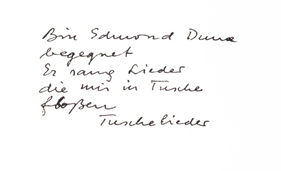 Bin Edmond Dune
begegnet
Er sang Lieder
die mir in Tusche
floßen
Tuschelieder